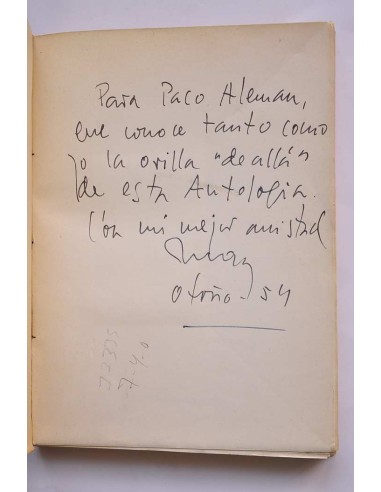 Para Paco Aleman,
que conoce tanto como
yo la orilla "de allá"
de esta Antología.
Con mi mejor amistad
Otoño - 54